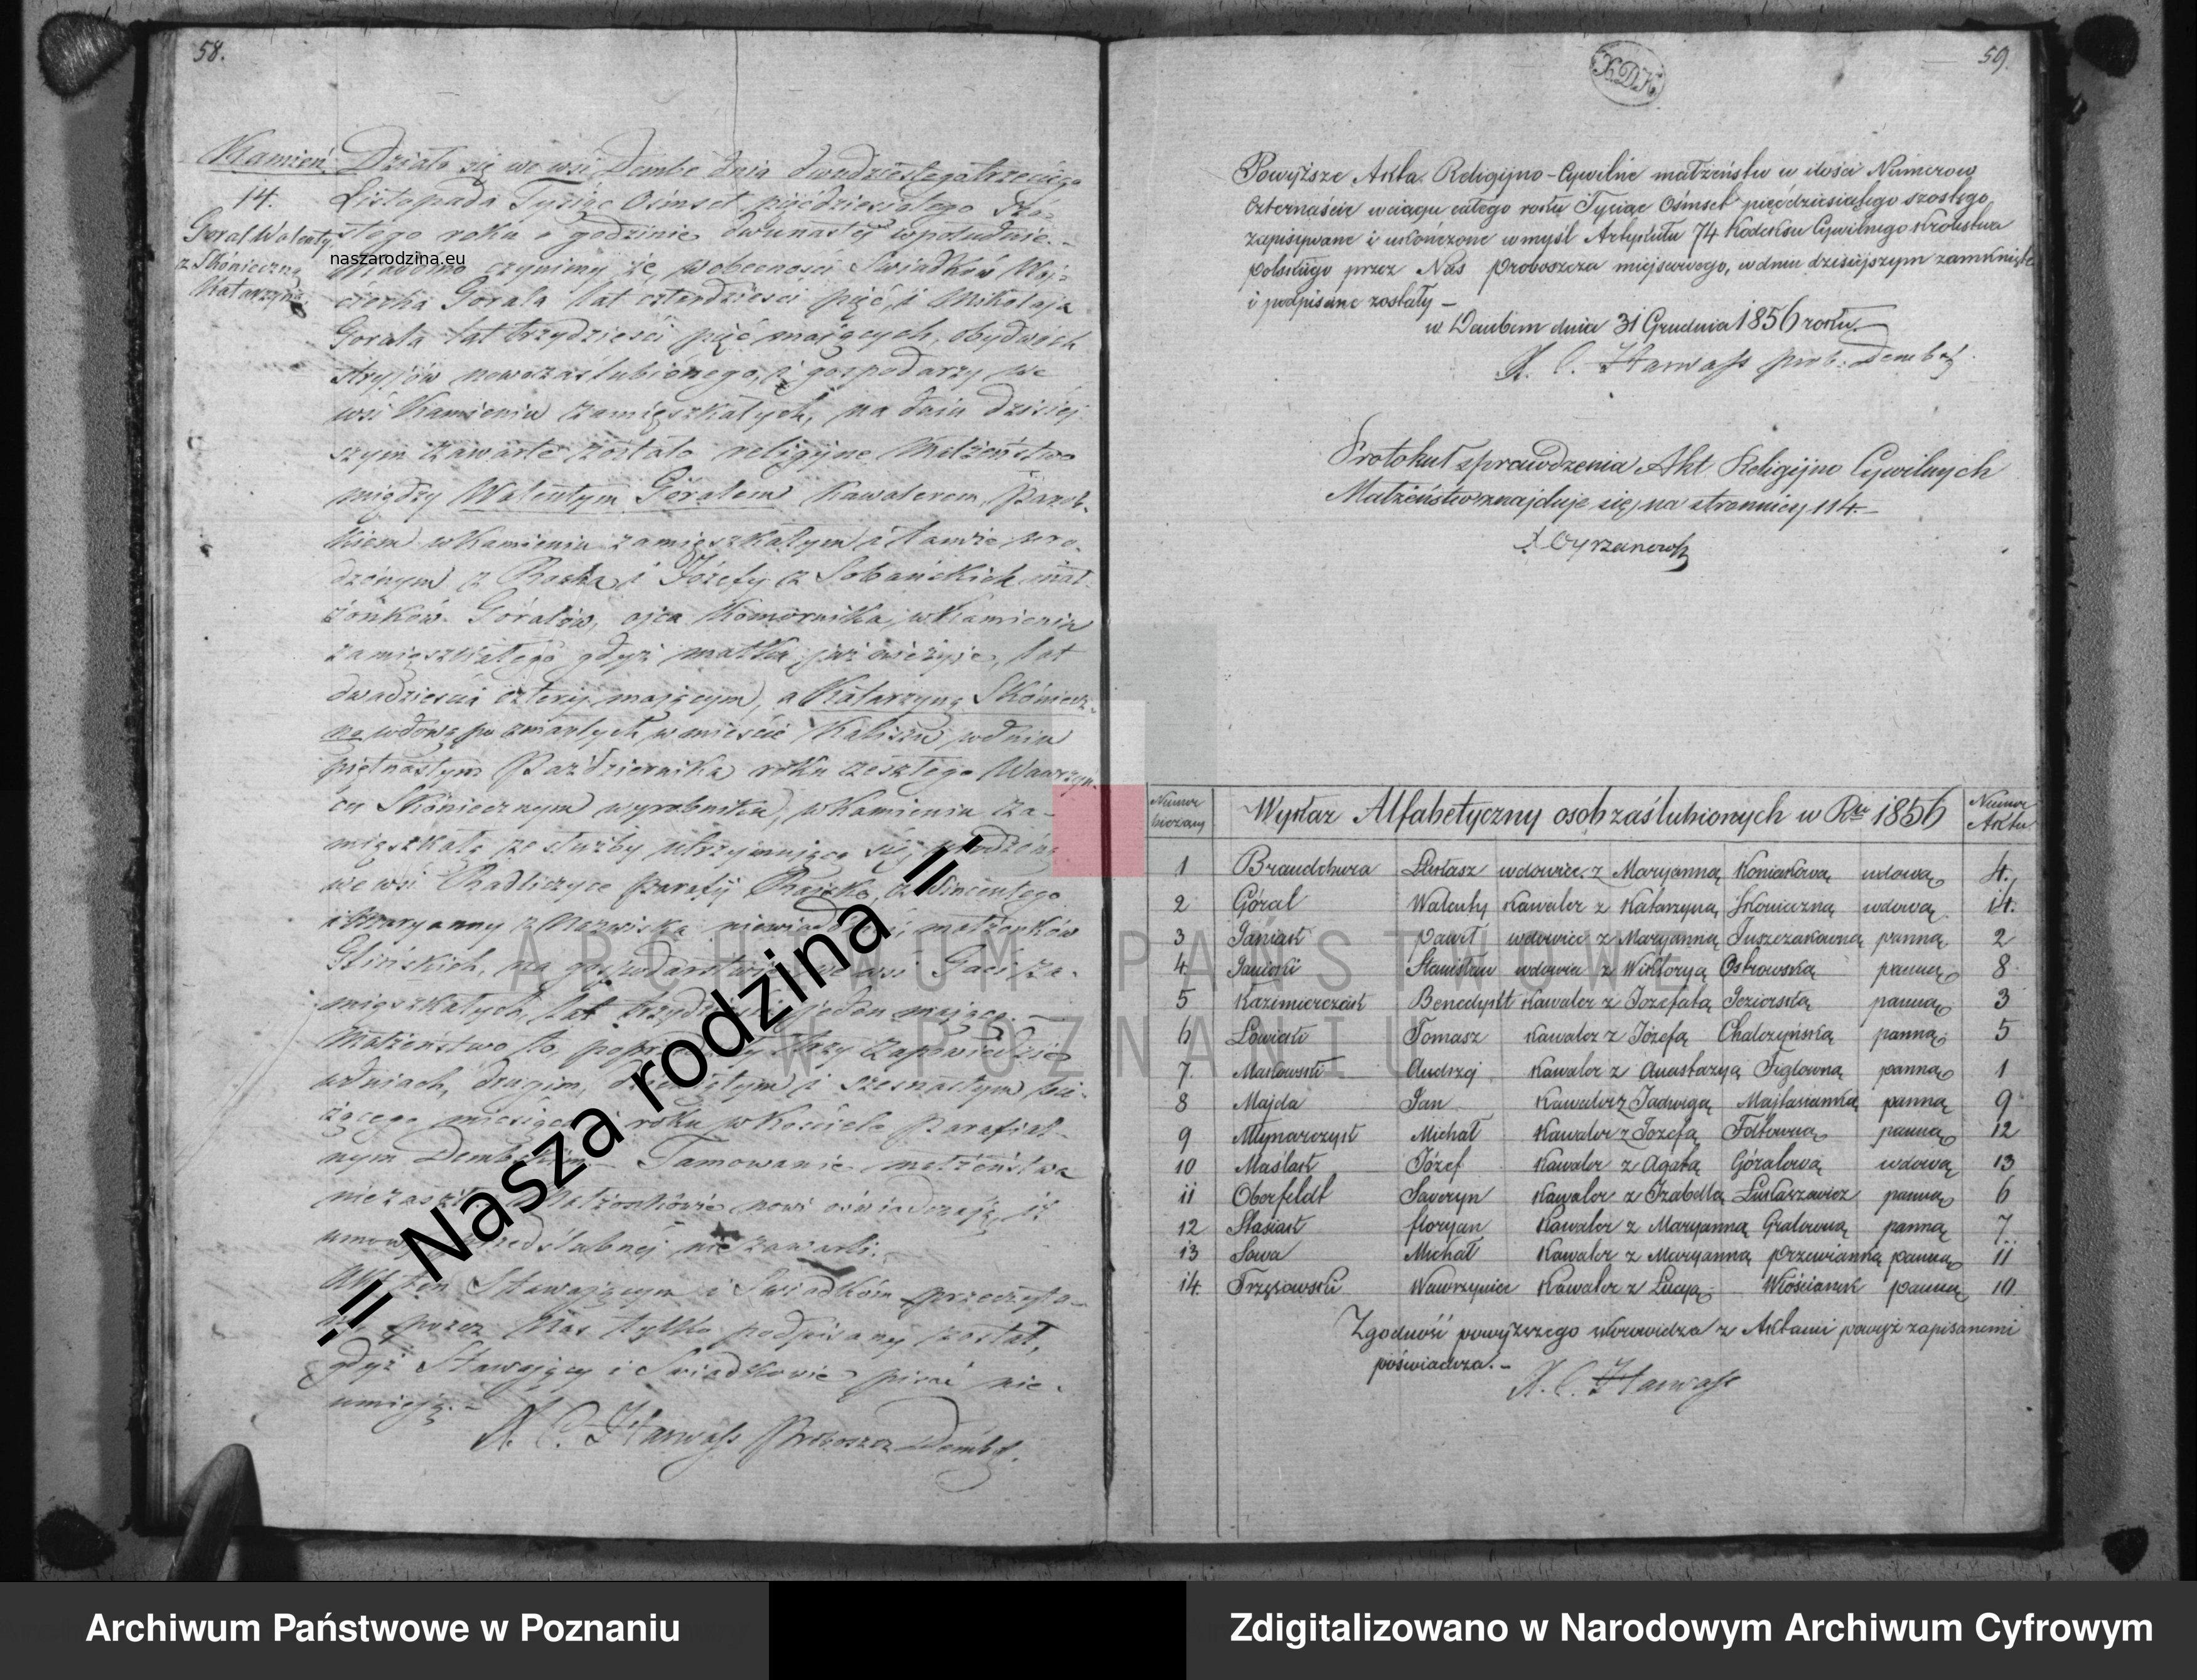 58.
Kamień.
14.
Goral Walenty
z Skonieczną
Katarzyną.
Działo się we wsi Dembe dnia dwudziestego trzeciego
Listopada Tysiąc Osmset pięćdziesiątego szó-
stego roku o godzinie dwunastej w południe.-
Wiadomo czynimy że w obecności Świadków Woj-
ciecha Gorala lat czterdzieści pięć, i Mikołaja
Gorala lat trzydzieści pięć mających, obydwóch
stryjów nowozaślubionego, i gospodarzy we
wsi Kamieniu zamięszkałych, na dniu dzisiej
szym zawarte zostało religijne Małżeństwo
między Walentym Góralem Kawalerem, Parob-
kiem w Kamieniu zamięszkałym i tamże uro-
dzonym z Rocha i Józefy z Sobańskich mał-
żonków Góralów, ojca Komornika w Kamieniu
zamięszkałego gdyż matka już nieżyje, lat
dwadzieścia cztery mającym, a Katarzyną Skoniecz-
ną wdową po zmarłym w mieście Kaliszu w dniu
piętnastym Października roku zeszłego Wawrzyń-
cu Skoniecznym wyrobniku, w Kamieniu za-
mięszkałą ze służby utrzymującą się, urodzoną
we wsi Radliczyce Parafij Rajsko, z Wincentego
i Maryanny z Nazwiska niewiadomej małżonków
Glińskich, na gospodarstwie we wsi
mięszkałych, lat trzydzieści jeden mającą.-
Małżeństwo to, poprzedziły trzy Zapowiedzie
w dniach, drugim, dziewiątym i szesnastym bie-
żącego miesiąca i roku w Kościele Parafial-
nym Dembskim- Tamowanie małżeństwa
niezaszło. Małżonkowie nowi oświadczają, iż
umowy przedślubnej nie zawarli.
Akt ten Stawającym i Świadkóm przeczyta-
ny przez Nas tylko podpisany został,
gdyż Stawający i Świadkowie pisać nie-
umieją.-
X. C. Harwass Proboszcz Dembs.
naszarodzina.eu
.:|| Nasza rodzina ||:.
59.
KDK
Powyższe Akta Religijno-Cywilne małżeństw w ilości Numerow
Czternaście w ciągu całego roku Tysiąc Ośmset pięćdziesiątego szostego
zapisywane i ukończone w myśl Artykułu 74 Kodeksu Cywilnego Krolestwa
Polskiego przez Nas Proboszcza miejscowego, w dniu dzisiejszym zamknięte
i podpisane zostały -
w Dembem dnia 31 Grudnia 1856 roku.
X. C. Harwass prob. Dembs.
Protokuł sprawdzenia Akt Religijno Cywilnych
Małżeństw znajduje się na stronnicy 114.-
Numer bieżący Wykaz Alfabetyczny osob zaślubionych w Rku 1856 Numer Aktu
1 Braudchura Łukasz wdowiec z Maryanną Koniarkową wdową 4.
2 Góral Walenty Kawaler z Katarzyną Skonieczną wdową 14.
3 Janiak Paweł wdowiec z Maryanną Juszczakowną panną 2
4 Janicki Stanisław wdowiec z Wiktoryą Ostrowską panną 8
5 Kazimierczak Benedykt Kawaler z Jozefatą Jeziorską panną 3
6 Łowicki Tomasz Kawaler z Józefą Chalczyńską panną 5
7. Masłowski Andrzej Kawaler z Anastazyą Figlowną panną 1
8 Majda Jan Kawaler z Jadwigą Majtasianką panną 9
9 Młynarczyk Michał Kawaler z Jozefą Foltowną panną 12
10 Maślak Józef Kawaler z Agatą Góralową wdową 13
11 Oberfeldt Saweryn Kawaler z Izabellą Łukaszewicz panną 6
12 Stasiak floryan Kawaler z Maryanną Gralowną panną 7.
13 Sowa Michał Kawaler z Maryanną Przewianną panną 11
14. Trzęsowski Wawrzyniec Kawaler z Lucyą Włóścianek panną 10.
Zgodność powyższego skorowidza z Aktami powyż zapisanemi
poświadcza.-
X. C. Harwass
ARCHIWUM PAŃSTWOWE
W POZNANIU
Archiwum Państwowe w Poznaniu
Zdigitalizowano w Narodowym Archiwum Cyfrowym